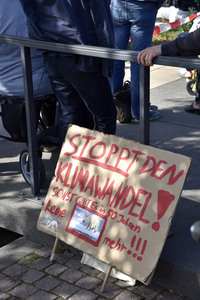 STOPPT DEN
KLIMAWANDEL!
SONST GIBT ES in 50 Jahren
keine
mehr!!!